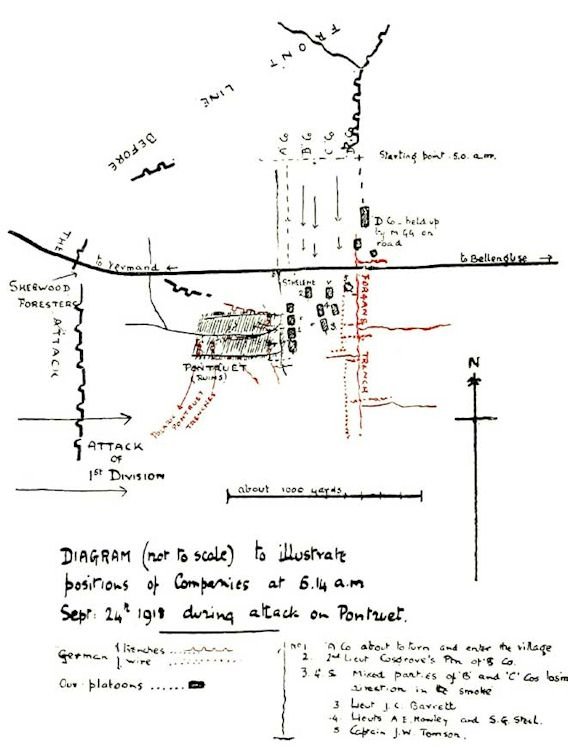 FRONT
LINE
BEFORE
THE
ATTACK
Starting point 5.0. a.m.
D. Co. held up
by M G's on
road
to Vermand
to Bellenglise
SHERWOOD
FORESTERS
STE HELENE
FORGANS
TRENCH
PONTRUET
(RUINS)
PONTRUET
TRENCHES
ATTACK
OF
1ST DIVISION
N
about 1000 yards
DIAGRAM (not to scale) to illustrate
positions of Companies at 6.14 a.m
Sept: 24th 1918 during attack on Pontruet.
German { trenches
{ wire
Our platoons
No 1 'A Co about to turn and enter the village
2. 2nd Lieut Cosgrove's Pln of 'B Co.
3. 4. 5 Mixed parties of 'B' and 'C' Cos losin
direction in the smoke
3 Lieut J. C. Barrett
4. Lieuts A E. Hawley and S. G. Steel.
5 Captain J. W. Tomson.